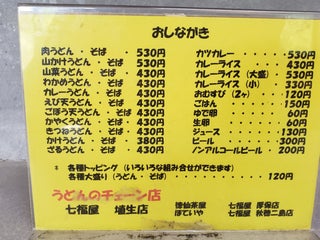 おしながき
肉うどん・そば・530円
山かけうどん・そば・530円
山菜うどん・そば・430円
わかめうどん・そば・430円
カレーうどん・そば・430円
えび天うどん・そば・430円
ごぼう天うどん・そば・430円
かやくうどん・そば・430円
きつねうどん・そば・430円
かけうどん・そば・380円
ざるうどん・そば・430円
カツカレー・・・・530円
カレーライス・・・430円
カレーライス(大盛)・530円
カレーライス(小)・330円
おむすび(2ヶ)・・120円
ごはん・・・・150円
ゆで卵・・・・60円
生卵・・・・60円
ジュース・・・130円
ビール・・・・300円
ノンアルコールビール・200円
* 各種トッピング(いろいろな組み合せができます)
各種大盛り(うどん・そば)・・・・・120円
うどんのチェーン店
七福屋 埴生店
徳仙茶屋 七福屋 厚保店
ほていや 七福屋 秋穂二島店